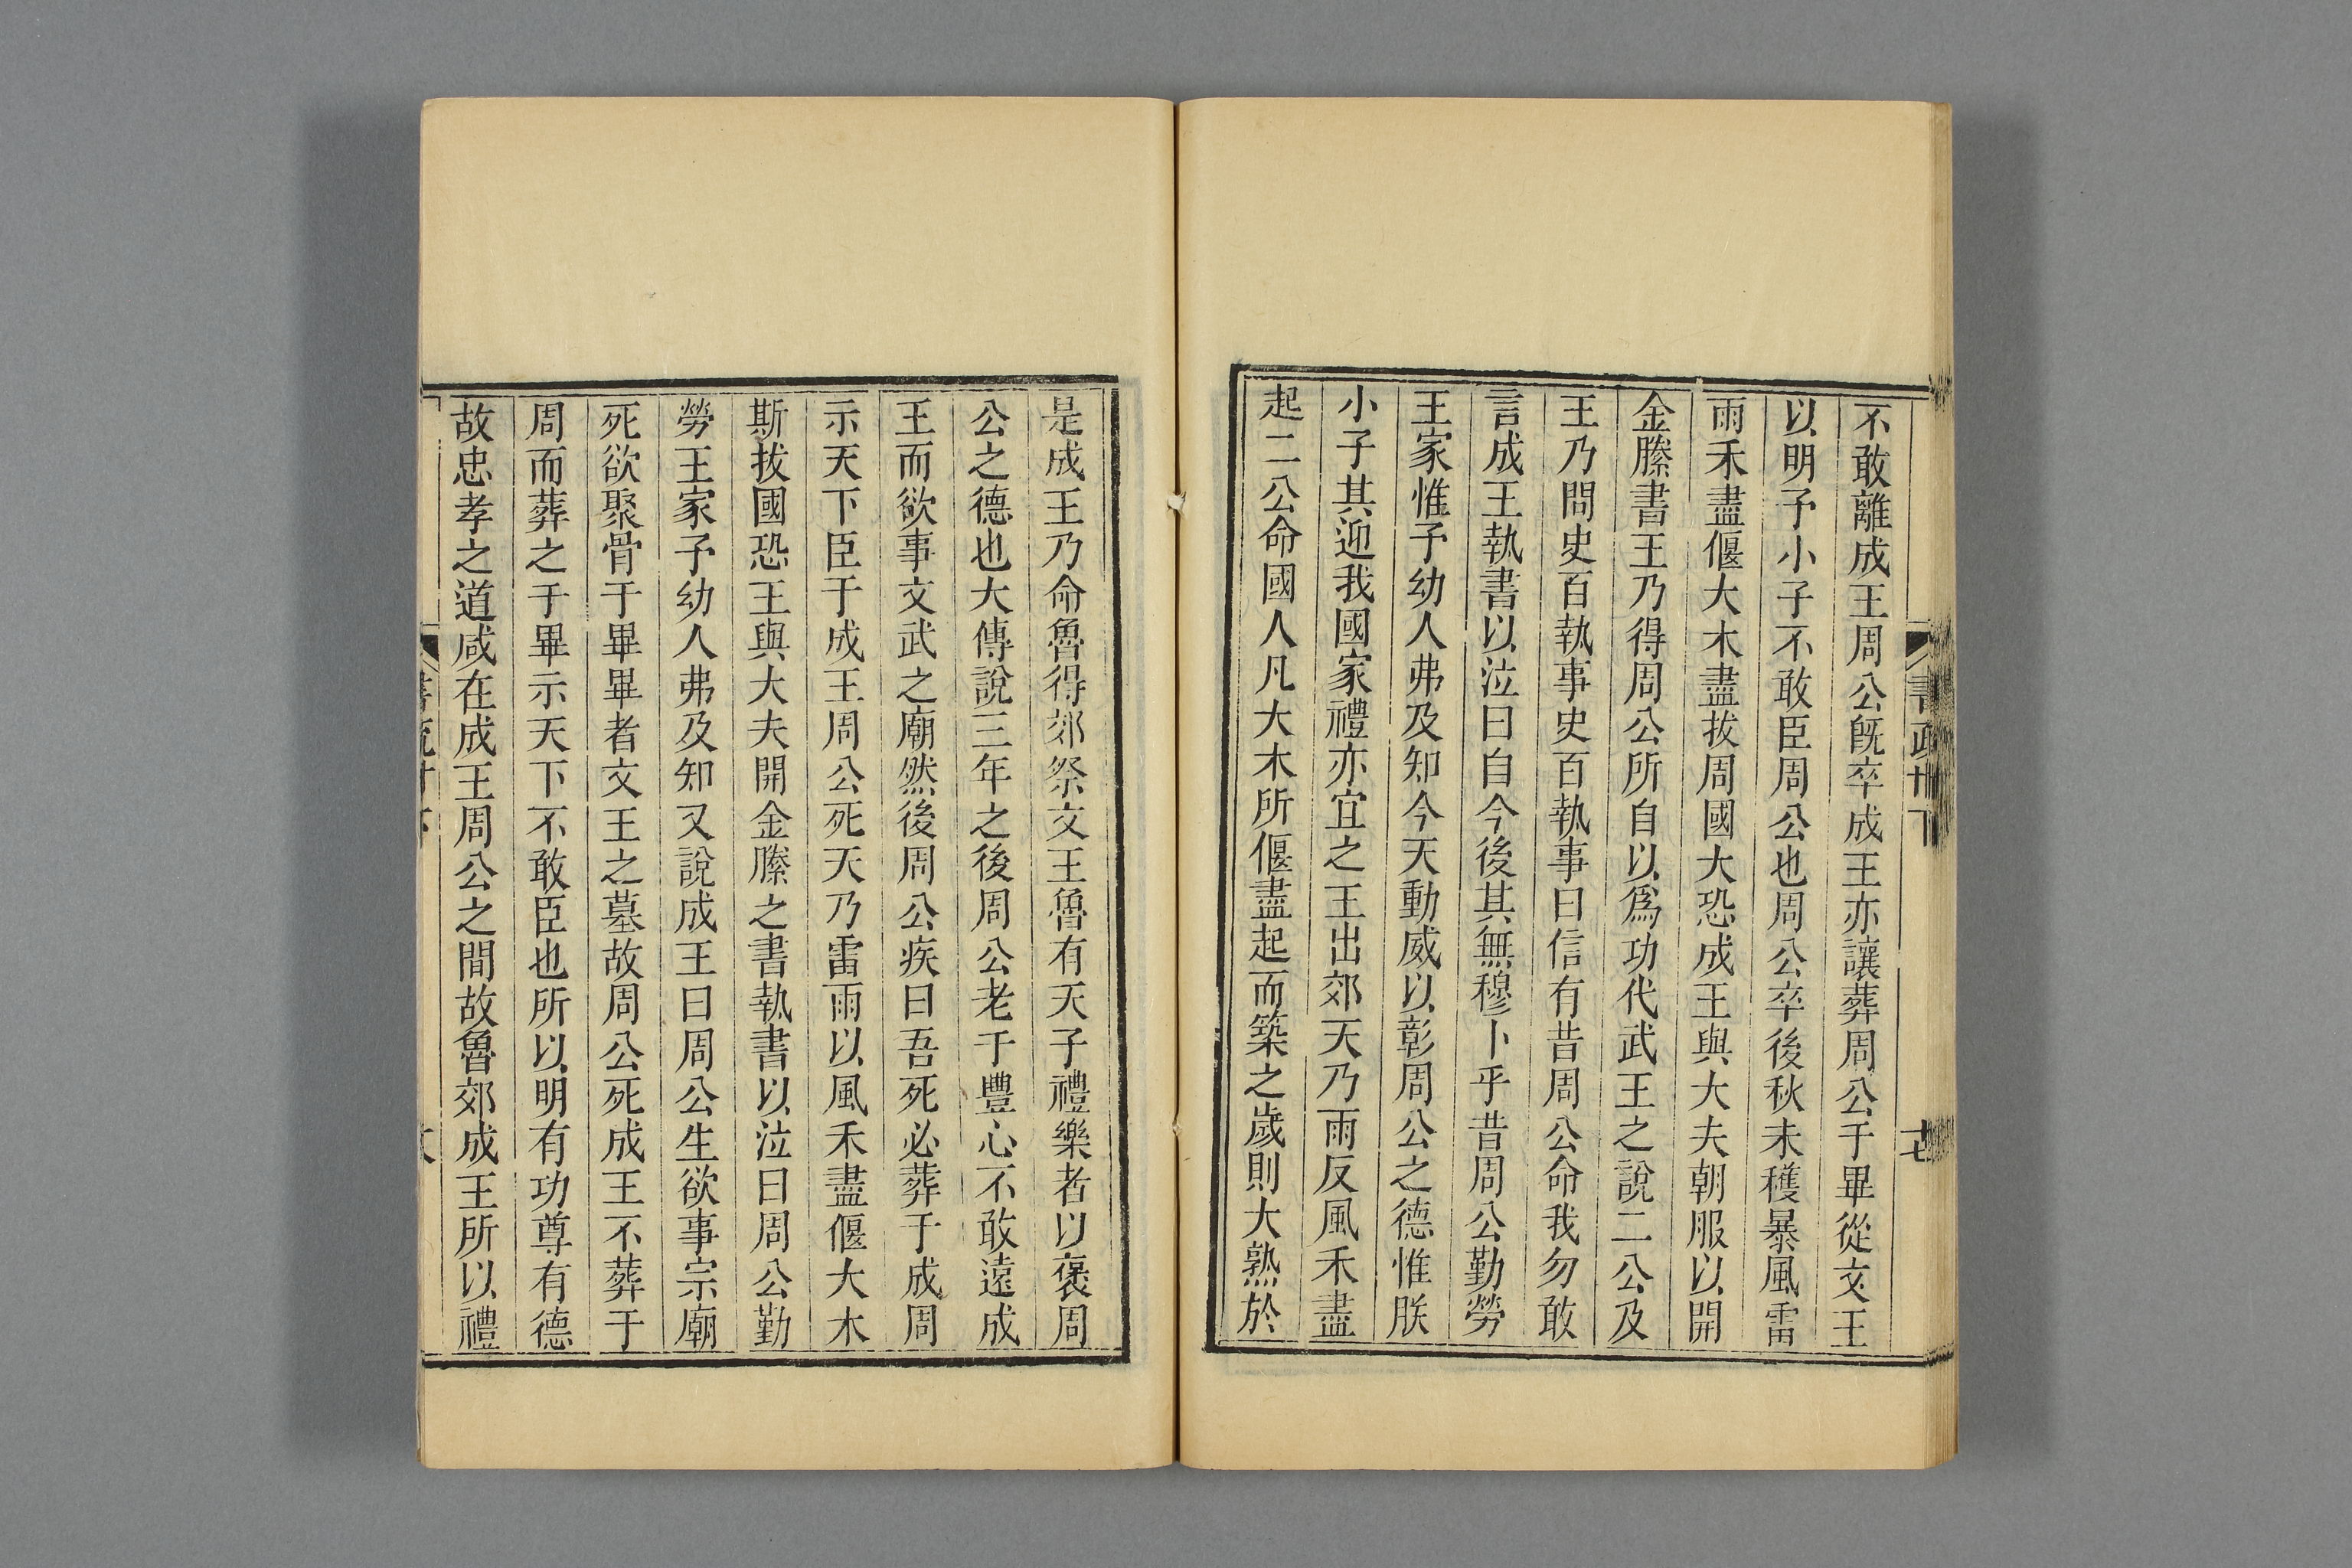 不敢離成王周公旣卒成王亦讓葬周公于畢從文王
以明予小子不敢臣周公也周公卒後秋未穫暴風雷
雨禾盡偃大木盡拔周國大恐成王與大夫朝服以開
金縢書王乃得周公所自以爲功代武王之說二公及
王乃問史百執事史百執事曰信有昔周公命我勿敢
言成王執書以泣曰自今後其無穆卜乎昔周公勤勞
王家惟予幼人弗及知今天動威以彰周公之德惟朕
小子其迎我國家禮亦宜之王出郊天乃雨反風禾盡
起二公命國人凡大木所偃盡起而築之歲則大熟於
是成王乃命魯得郊祭文王魯有天子禮樂者以褒周
公之德也大傳說三年之後周公老于豐心不敢遠成
王而欲事文武之廟然後周公疾曰吾死必葬于成周
示天下臣于成王周公死天乃雷雨以風禾盡偃大木
斯拔國恐王與大夫開金縢之書執書以泣曰周公勤
勞王家予幼人弗及知又說成王曰周公生欲事宗廟
死欲聚骨于畢畢者文王之墓故周公死成王不葬于
周而葬之于畢示天下不敢臣也所以明有功尊有德
故忠孝之道咸在成王周公之間故魯郊成王所以禮